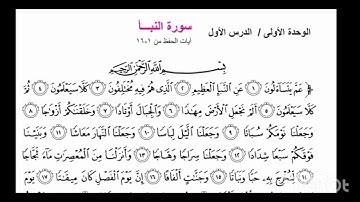 الوحدة الأولى / الدرس الأول
سورة النبأ
آيات الحفظ من ١-١٦
بِسْمِ اللَّهِ الرَّحْمَٰنِ الرَّحِيمِ
عَمَّ يَتَسَاءَلُونَ ١ عَنِ النَّبَإِ الْعَظِيمِ ٢ الَّذِي هُمْ فِيهِ مُخْتَلِفُونَ ٣ كَلَّا سَيَعْلَمُونَ ٤ ثُمَّ
كَلَّا سَيَعْلَمُونَ ٥ أَلَمْ نَجْعَلِ الْأَرْضَ مِهَادًا ٦ وَالْجِبَالَ أَوْتَادًا ٧ وَخَلَقْنَاكُمْ أَزْوَاجًا ٨
وَجَعَلْنَا نَوْمَكُمْ سُبَاتًا ٩ وَجَعَلْنَا اللَّيْلَ لِبَاسًا ١٠ وَجَعَلْنَا النَّهَارَ مَعَاشًا ١١ وَبَنَيْنَا
فَوْقَكُمْ سَبْعًا شِدَادًا ١٢ وَجَعَلْنَا سِرَاجًا وَهَّاجًا ١٣ وَأَنْزَلْنَا مِنَ الْمُعْصِرَاتِ مَاءً ثَجَّاجًا
١٤ لِنُخْرِجَ بِهِ حَبًّا وَنَبَاتًا ١٥ وَجَنَّاتٍ أَلْفَافًا ١٦ إِنَّ يَوْمَ الْفَصْلِ كَانَ مِيقَاتًا ١٧ يَوْمَ